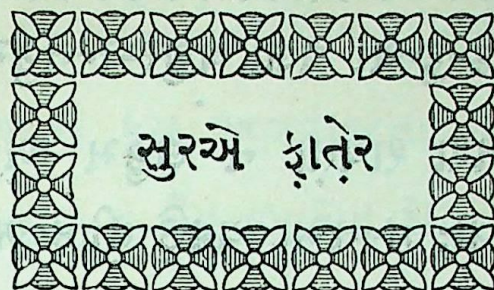 સુરએ ફ઼ાતે઼ર